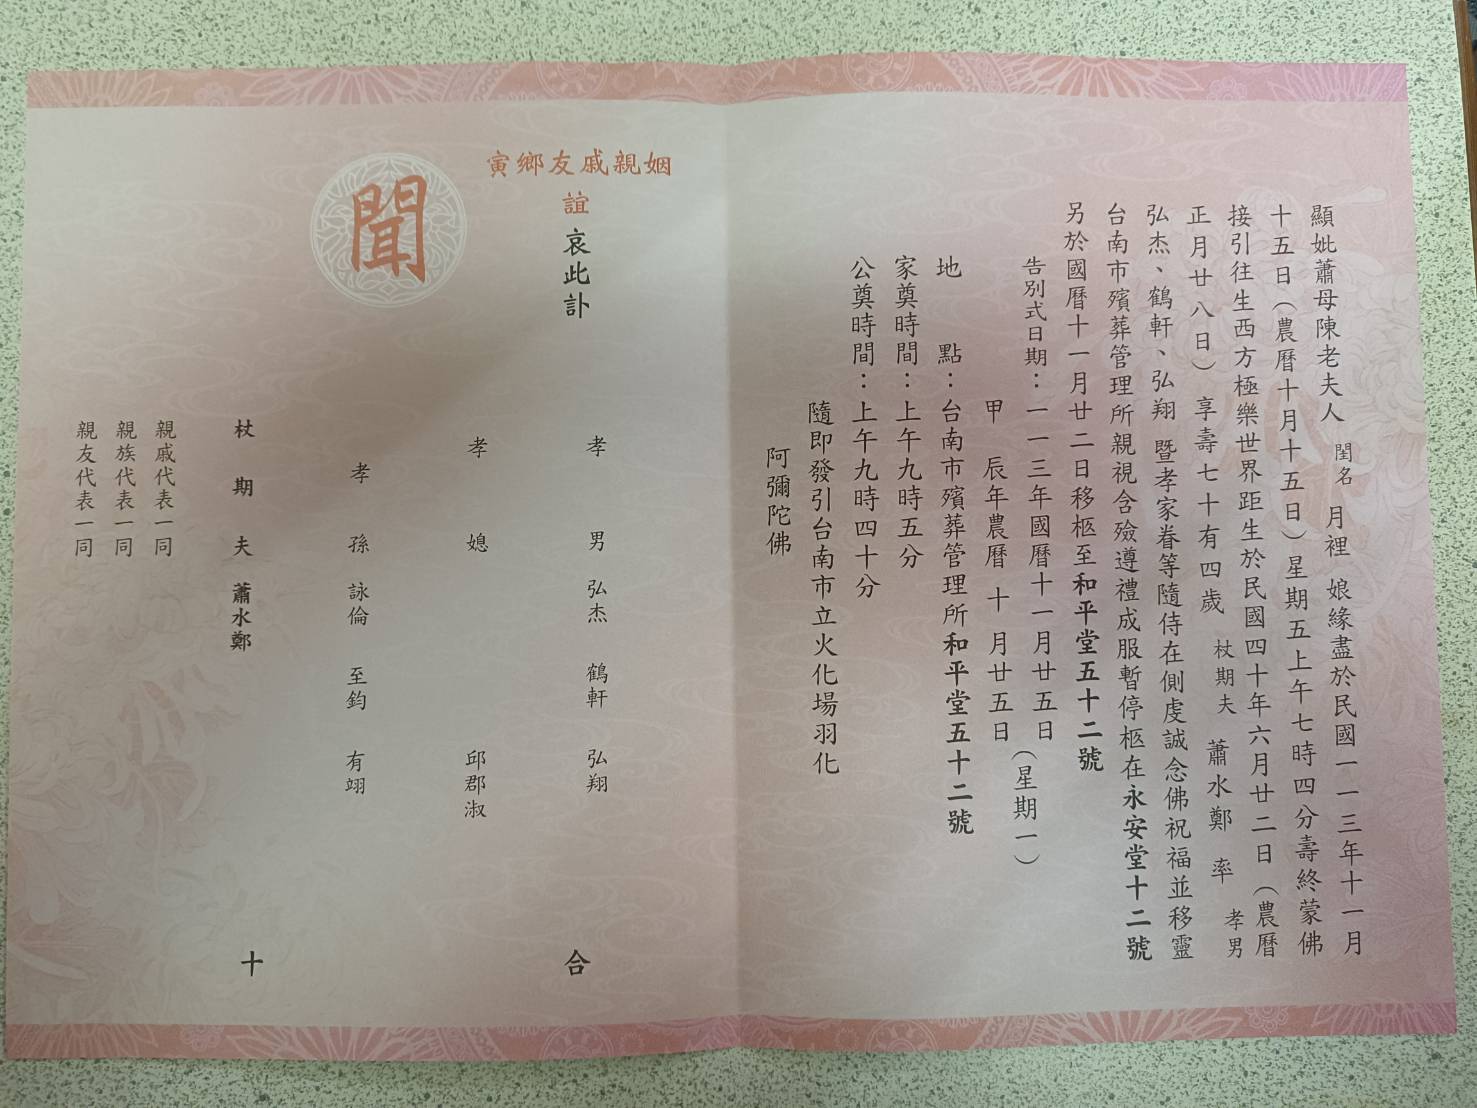 顯妣蕭母陳老夫人 閨名 月裡 娘緣盡於民國一一三年十一月
十五日（農曆十月十五日）星期五上午七時四分壽終蒙佛
接引往生西方極樂世界距生於民國四十年六月廿二日（農曆
正月廿八日）享壽七十有四歲 杖期夫 蕭水鄭 率 孝男
弘杰、鶴軒、弘翔 暨孝家眷等隨侍在側虔誠念佛祝福並移靈
台南市殯葬管理所親視含殮遵禮成服暫停柩在永安堂十二號
另於國曆十一月廿二日移柩至和平堂五十二號
告別式日期：一一三年國曆十一月廿五日（星期一）
甲 辰年農曆 十 月廿五日
地 點：台南市殯葬管理所和平堂五十二號
家奠時間：上午九時五分
公奠時間：上午九時四十分
隨即發引台南市立火化場羽化
阿彌陀佛
寅鄉友戚親姻
誼哀此訃
聞
孝 男 弘杰 鶴軒 弘翔 合
孝 媳 邱郡淑
孝 孫 詠倫 至鈞 有翊
杖 期 夫 蕭水鄭 十
親戚代表一同
親族代表一同
親友代表一同